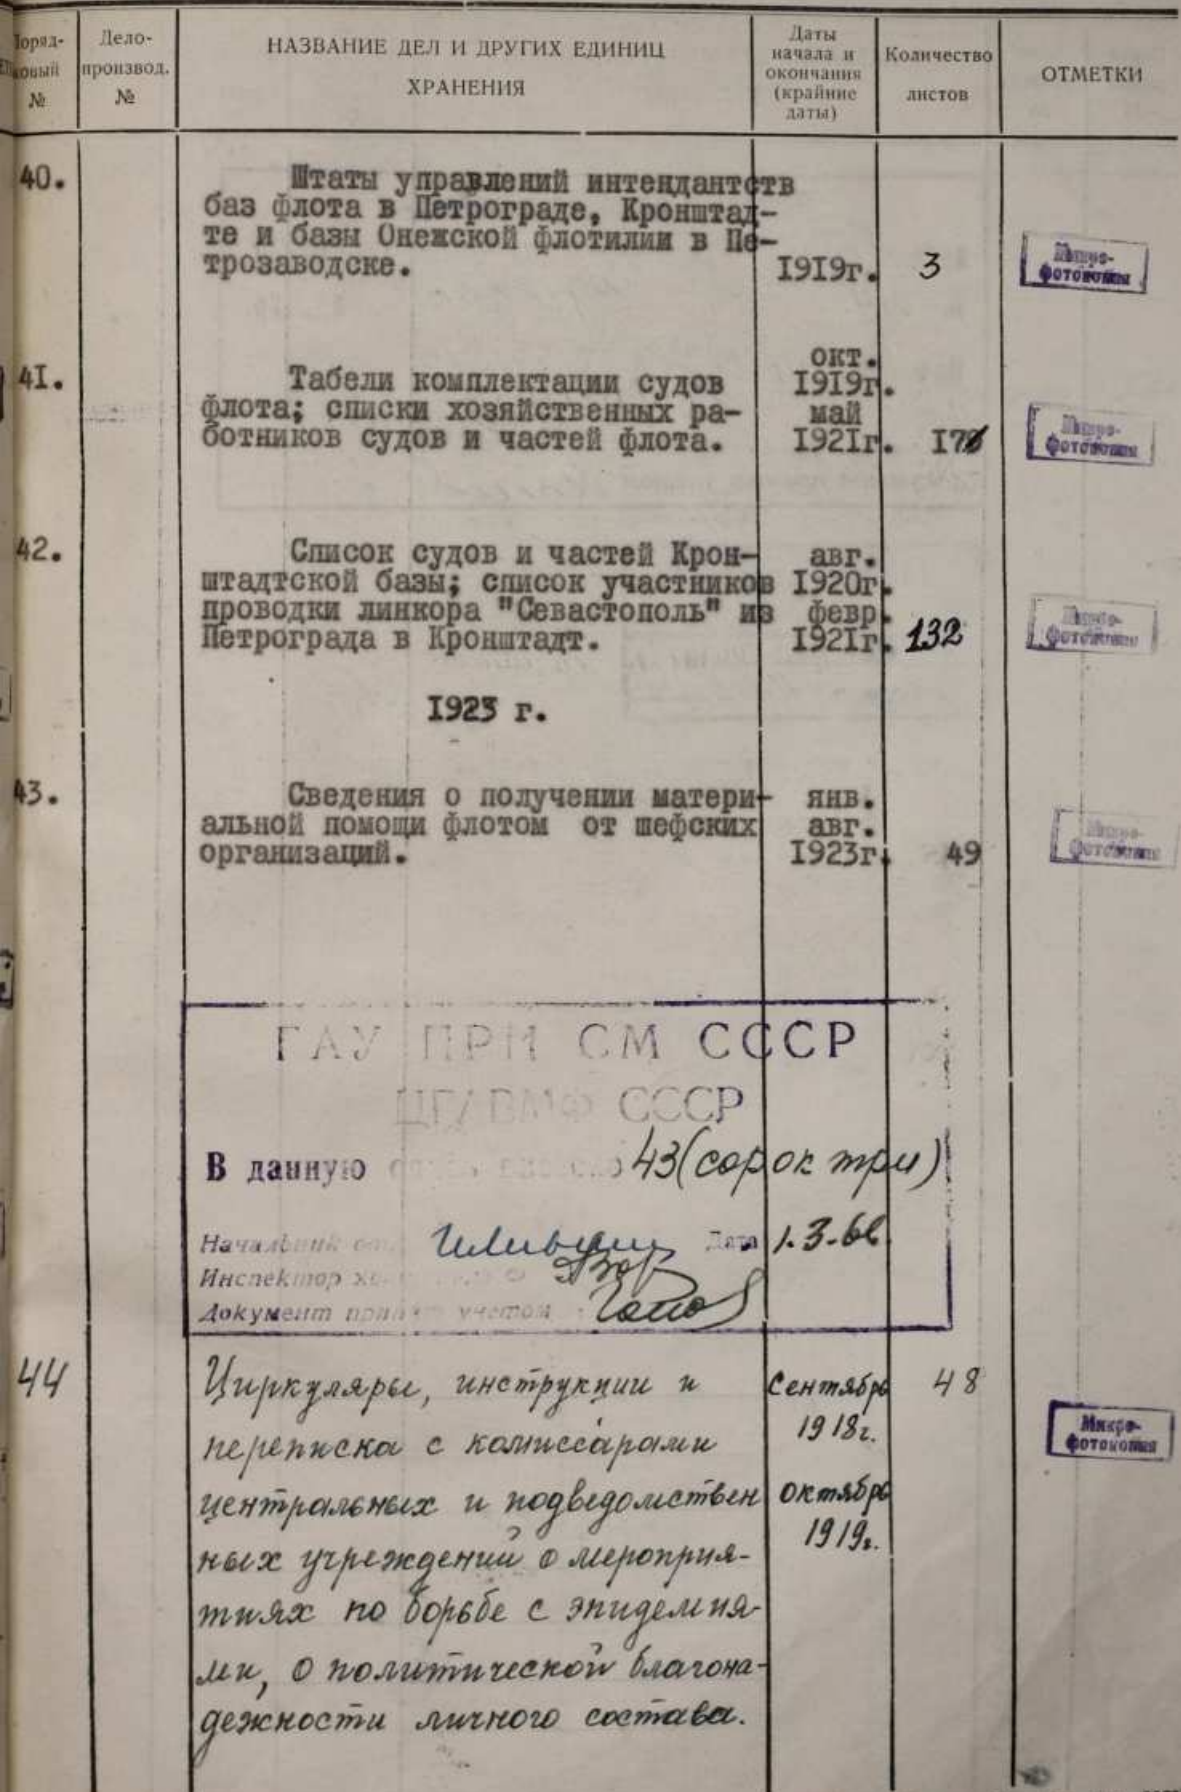 Поряд-
ковый
№
Дело-
производ.
№
НАЗВАНИЕ ДЕЛ И ДРУГИХ ЕДИНИЦ
ХРАНЕНИЯ
Даты
начала и
окончания
(крайние
даты)
Количество
листов
ОТМЕТКИ
40.
Штаты управлений интендантств
баз флота в Петрограде, Кронштад-
те и базы Онежской флотилии в Пе-
трозаводске.
1919г.
3
Микро-
фотокопия
41.
Табели комплектации судов
флота; списки хозяйственных ра-
ботников судов и частей флота.
окт.
1919г.
май
1921г.
Микро-
фотокопия
42.
Список судов и частей Крон-
штадтской базы; список участников
проводки линкора "Севастополь" из
Петрограда в Кронштадт.
авг.
1920г.
февр.
1921г.
132
Микро-
фотокопия
1923 г.
43.
Сведения о получении матери-
альной помощи флотом от шефских
организаций.
янв.
авг.
1923г.
49
Микро-
фотокопия
ГАУ ПРИ СМ СССР
ЦГАВМФ СССР
В данную 43 (сорок три)
Начальник Дата 1.3.66
Инспектор
Документ учетом
44
Циркуляры, инструкции и
переписка с комиссарами
центральных и подведомствен
ных учреждений о мероприя-
тиях по борьбе с эпидемия-
ми, о политической благона-
дежности личного состава.
Сентябрь
1918г.
октябрь
1919г.
48
Микро-
фотокопия